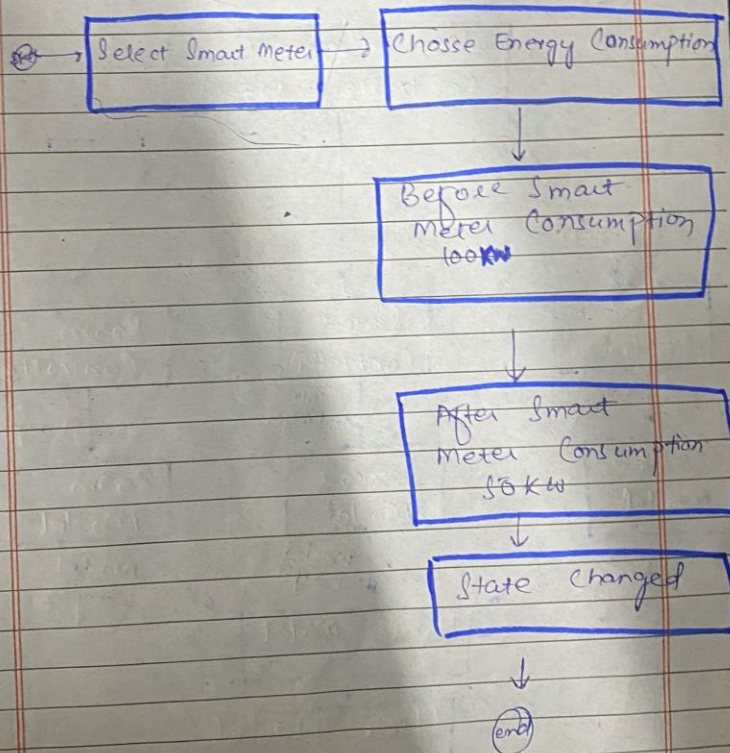 Select Smart Meter
Chosse Energy Consumption
Before Smart
Meter Consumption
100KW
After Smart
Meter Consumption
50KW
State Changed
end